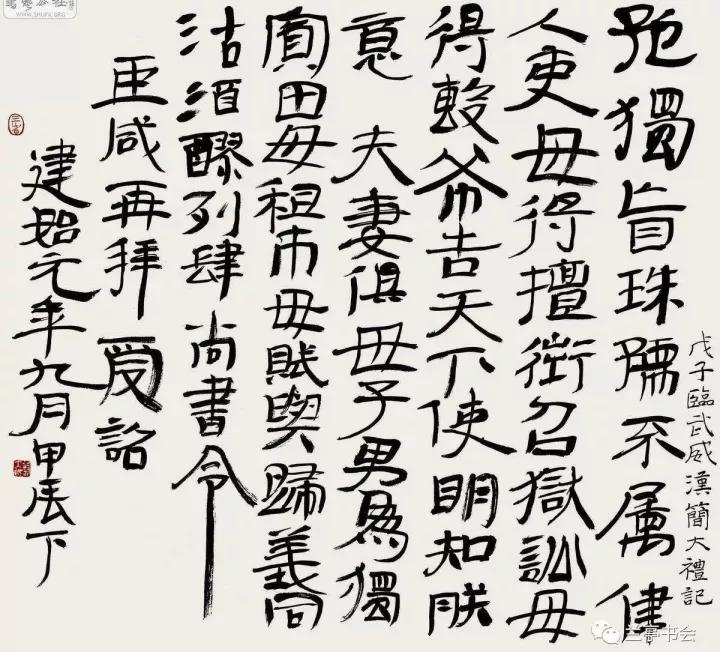 孤獨盲珠孺不属律
人吏毋得擅徵召獄訟毋
得毄布告天下使明知朕
意 夫妻俱毋子男為獨
寡田毋租市毋賦與歸義同
沽酒醪列肆尚書令
臣咸再拜受詔
建始元年九月甲辰下
戊子臨武威漢簡大禮記
WWW.SHUFA.ORG
兰亭书会